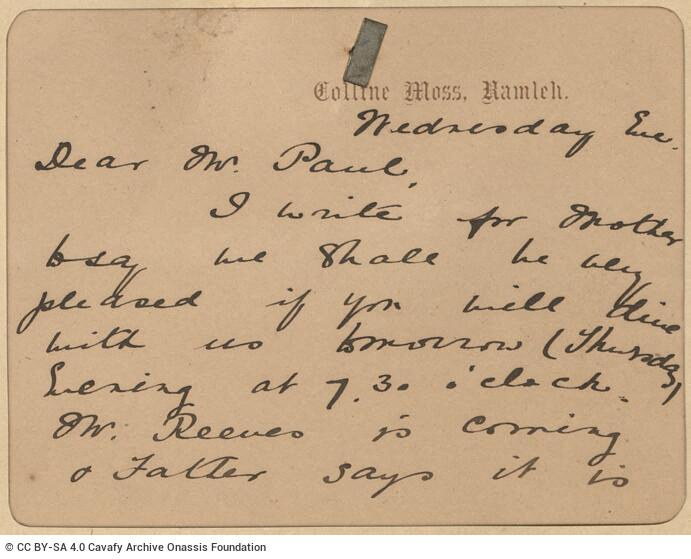 Colline Moss, Ramleh.
Wednesday Eve.
Dear Mr. Paul,
I write for Mother
to say we shall be very
pleased if you will dine
with us tomorrow (Thursday)
Evening at 7.30 o'clock.
Mr. Reeves is coming
& Father says it is
© CC BY-SA 4.0 Cavafy Archive Onassis Foundation